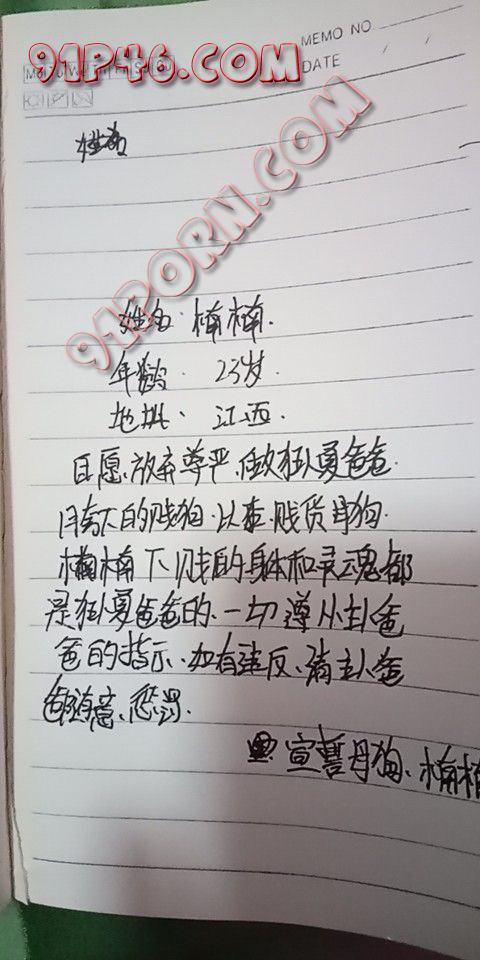 91P46.COM
MEMO NO
DATE / /
Mo Tu We Th Fr Sa Su
91PORN.COM
姓名：楠楠.
年龄：23岁.
地址：江西.
自愿放弃尊严.做狂儿夏爸爸.
胯下的贱狗.以及贱货母狗.
楠楠下贱的身体和灵魂都
是狂儿夏爸爸的.一切遵从主人爸
爸的指示.如有违反、请主人爸
爸随意、惩罚.
宣誓母狗、楠楠
91P46.COM